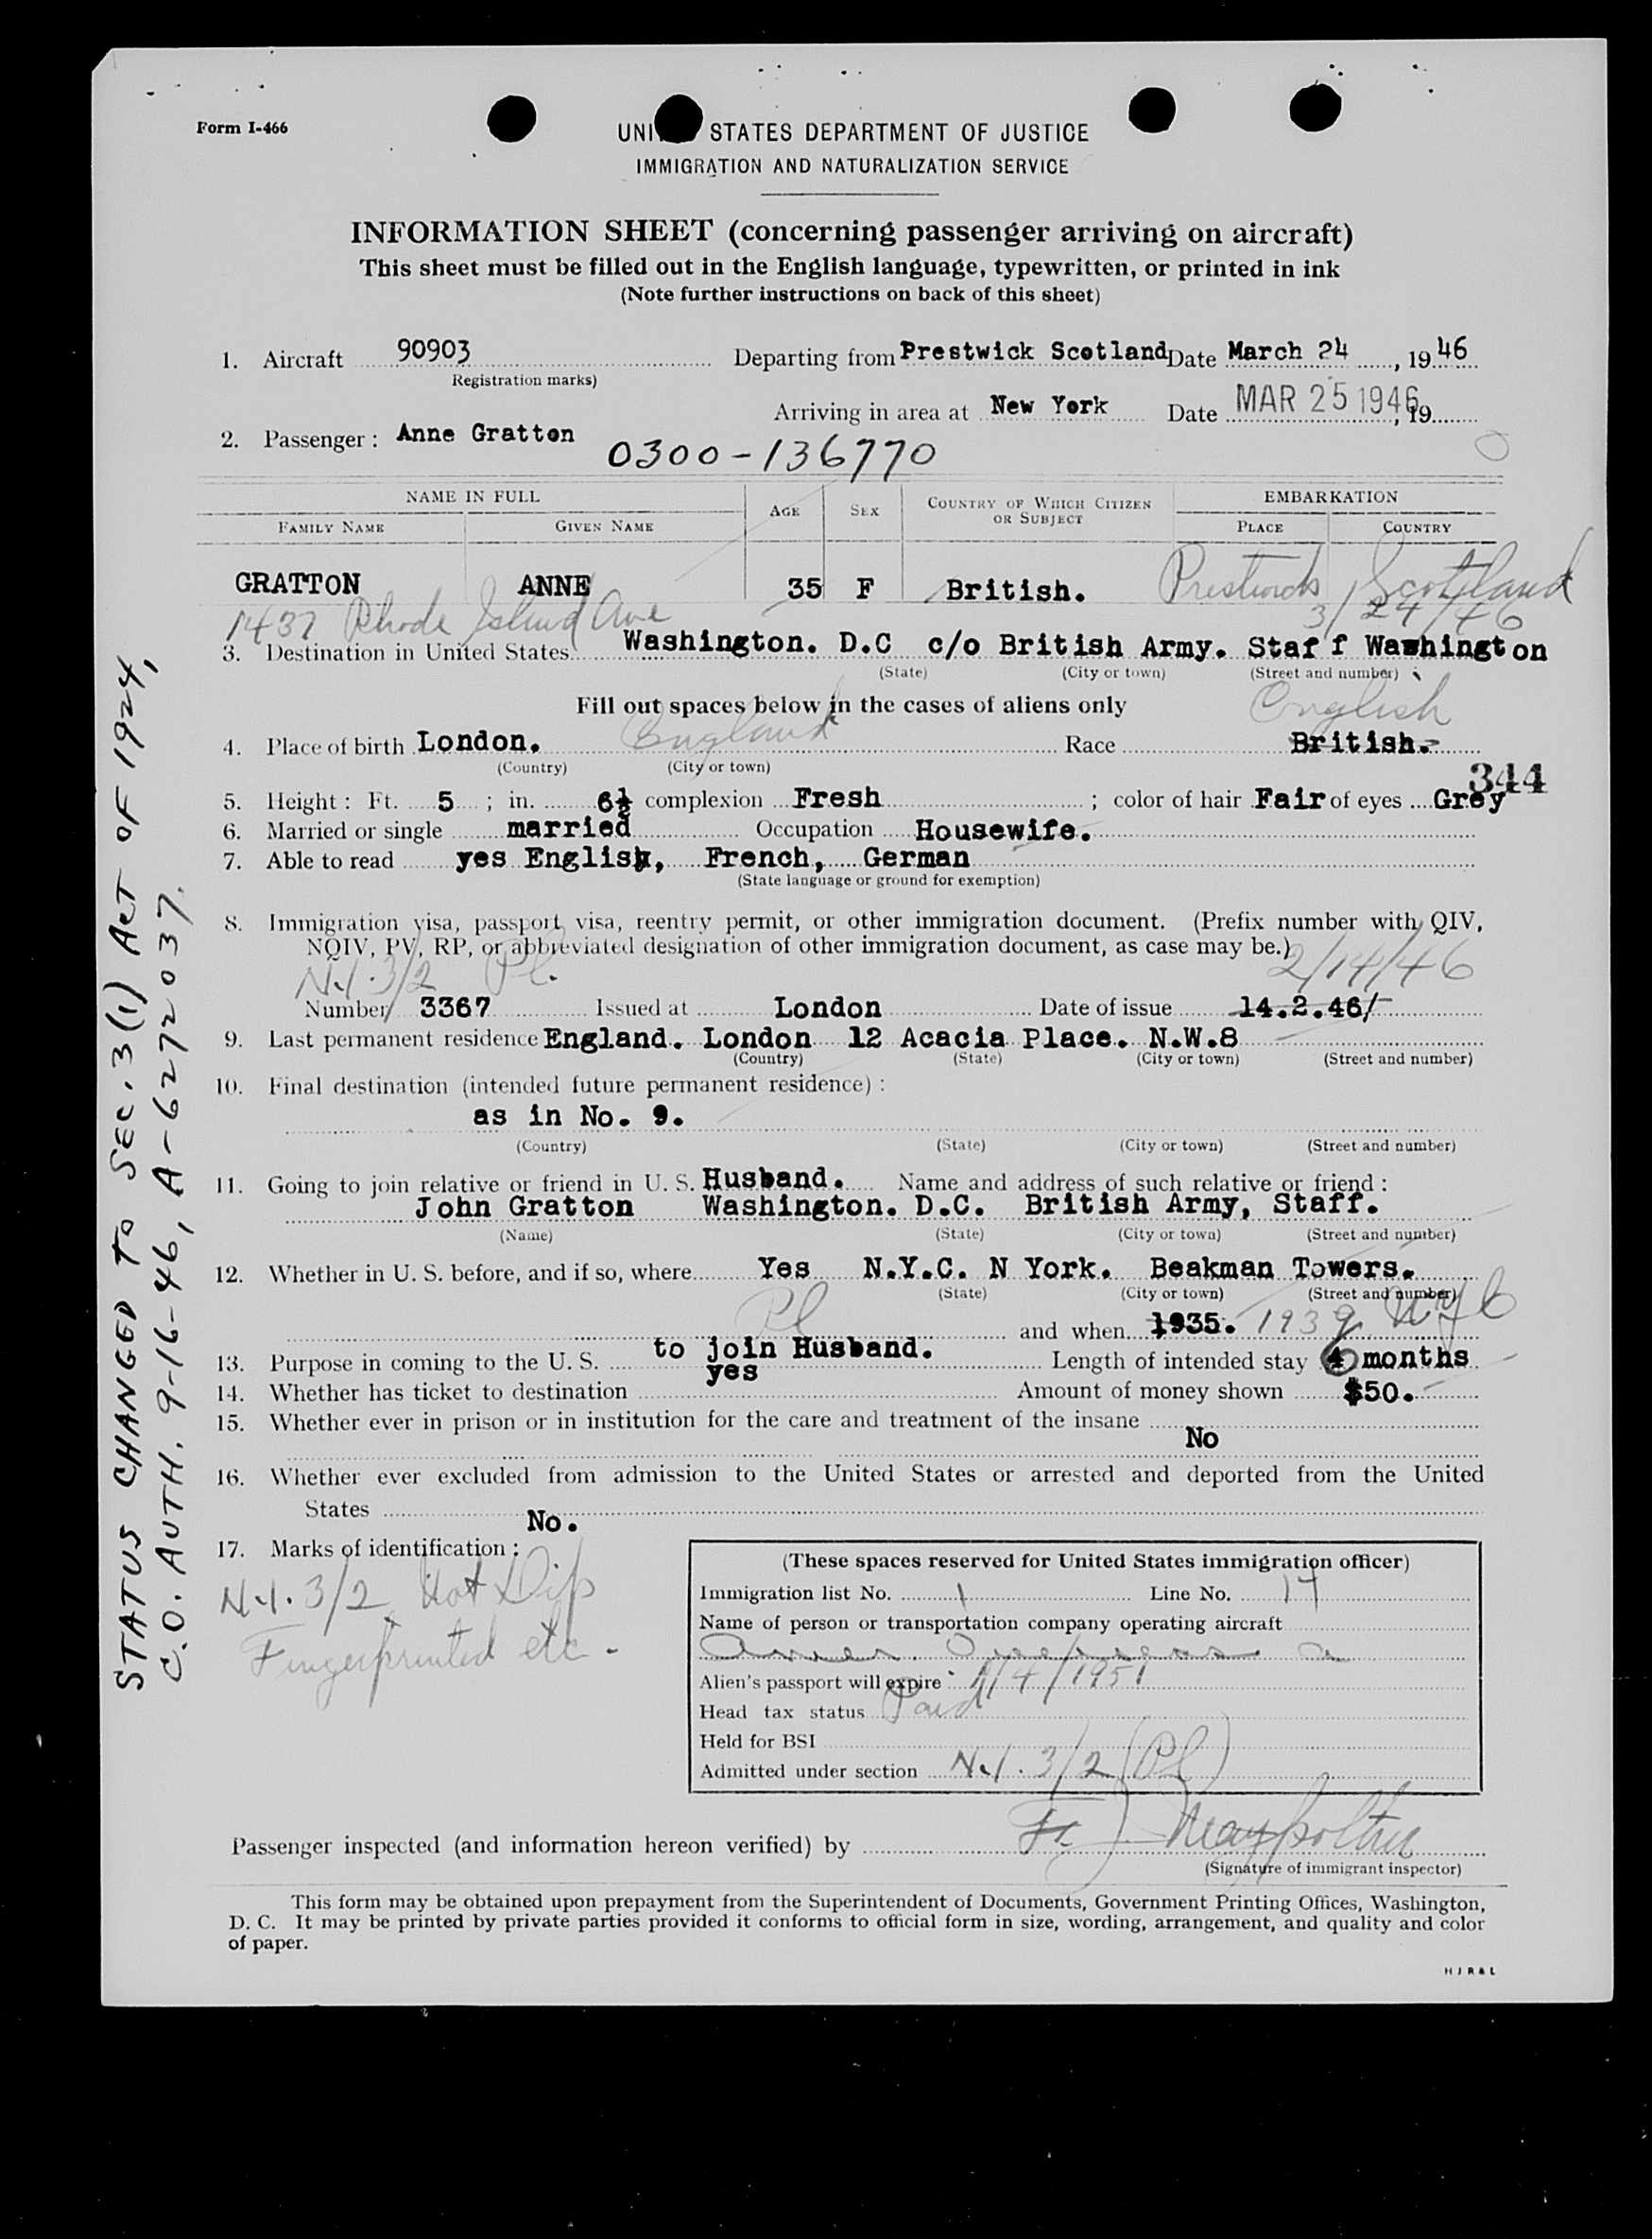 Form I-466
UNI STATES DEPARTMENT OF JUSTICE
IMMIGRATION AND NATURALIZATION SERVICE
INFORMATION SHEET (concerning passenger arriving on aircraft)
This sheet must be filled out in the English language, typewritten, or printed in ink
(Note further instructions on back of this sheet)
1. Aircraft 90903 Departing from Prestwick Scotland Date March 24, 1946
(Registration marks)
Arriving in area at New York Date MAR 25 1946, 19
2. Passenger: Anne Gratton
0300-136770
NAME IN FULL AGE SEX COUNTRY OF WHICH CITIZEN OR SUBJECT EMBARKATION
FAMILY NAME GIVEN NAME PLACE COUNTRY
GRATTON ANNE 35 F British. Prestwick Scotland
1437 Rhode Island Ave 3/24/46
3. Destination in United States Washington. D.C c/o British Army. Staff Washington
(State) (City or town) (Street and number)
Fill out spaces below in the cases of aliens only
English
4. Place of birth London. England Race British.
(Country) (City or town)
344
5. Height: Ft. 5; in. 6½ complexion Fresh; color of hair Fair of eyes Grey
6. Married or single married Occupation Housewife.
7. Able to read yes English, French, German
(State language or ground for exemption)
8. Immigration visa, passport visa, reentry permit, or other immigration document. (Prefix number with QIV,
NQIV, PV, RP, or abbreviated designation of other immigration document, as case may be.)
N.I. 3/2 Pl. 2/14/46
Number 3367 Issued at London Date of issue 14.2.46/
9. Last permanent residence England. London 12 Acacia Place. N.W.8
(Country) (State) (City or town) (Street and number)
10. Final destination (intended future permanent residence):
as in No. 9.
(Country) (State) (City or town) (Street and number)
11. Going to join relative or friend in U. S. Husband. Name and address of such relative or friend:
John Gratton Washington. D.C. British Army, Staff.
(Name) (State) (City or town) (Street and number)
12. Whether in U. S. before, and if so, where Yes N.Y.C. N York. Beakman Towers.
(State) (City or town) (Street and number)
Pl and when 1935. 1939 NYC
13. Purpose in coming to the U. S. to join Husband. Length of intended stay 6 months
14. Whether has ticket to destination yes Amount of money shown $50.
15. Whether ever in prison or in institution for the care and treatment of the insane
No
16. Whether ever excluded from admission to the United States or arrested and deported from the United
States No.
17. Marks of identification:
N.I. 3/2 Not Dip
Fingerprinted etc.
(These spaces reserved for United States immigration officer)
Immigration list No. 1 Line No. 17
Name of person or transportation company operating aircraft
Amer. Overseas
Alien's passport will expire 1/4/1951
Head tax status Paid
Held for BSI
Admitted under section N.I. 3/2 (Pl)
Passenger inspected (and information hereon verified) by
(Signature of immigrant inspector)
This form may be obtained upon prepayment from the Superintendent of Documents, Government Printing Offices, Washington,
D. C. It may be printed by private parties provided it conforms to official form in size, wording, arrangement, and quality and color
of paper.
H J R & L
STATUS CHANGED TO SEC. 3(1) ACT OF 1924,
C.O. AUTH. 9-16-46, A-6272037.